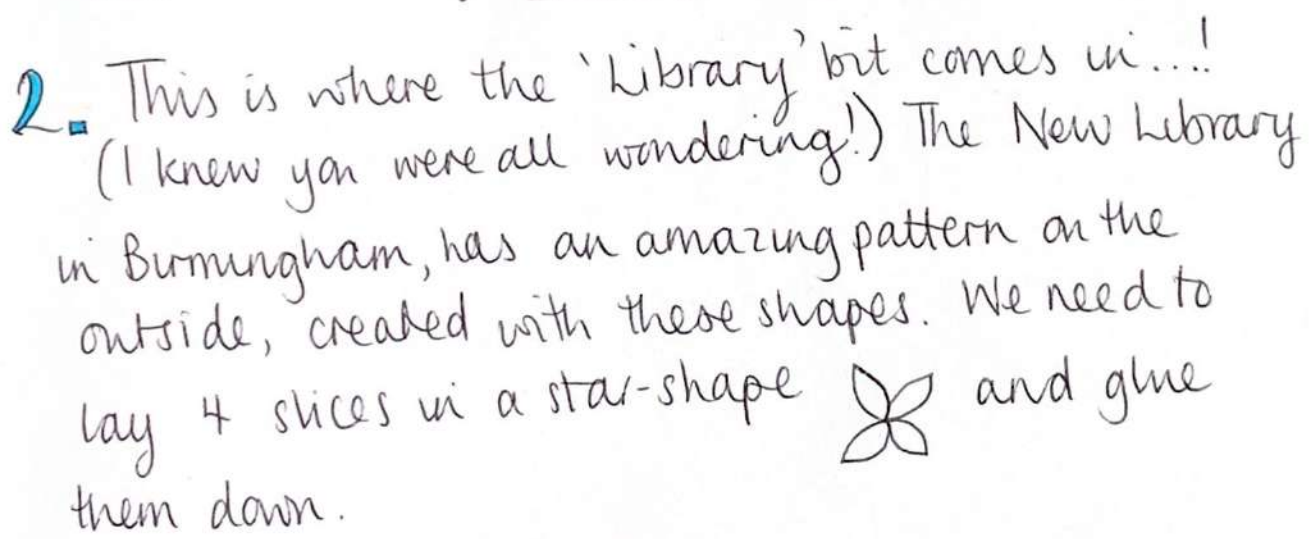 2. This is where the 'Library' bit comes in...!
(I knew you were all wondering!) The New Library
in Birmingham, has an amazing pattern on the
outside, created with these shapes. We need to
lay 4 slices in a star-shape and glue
them down.